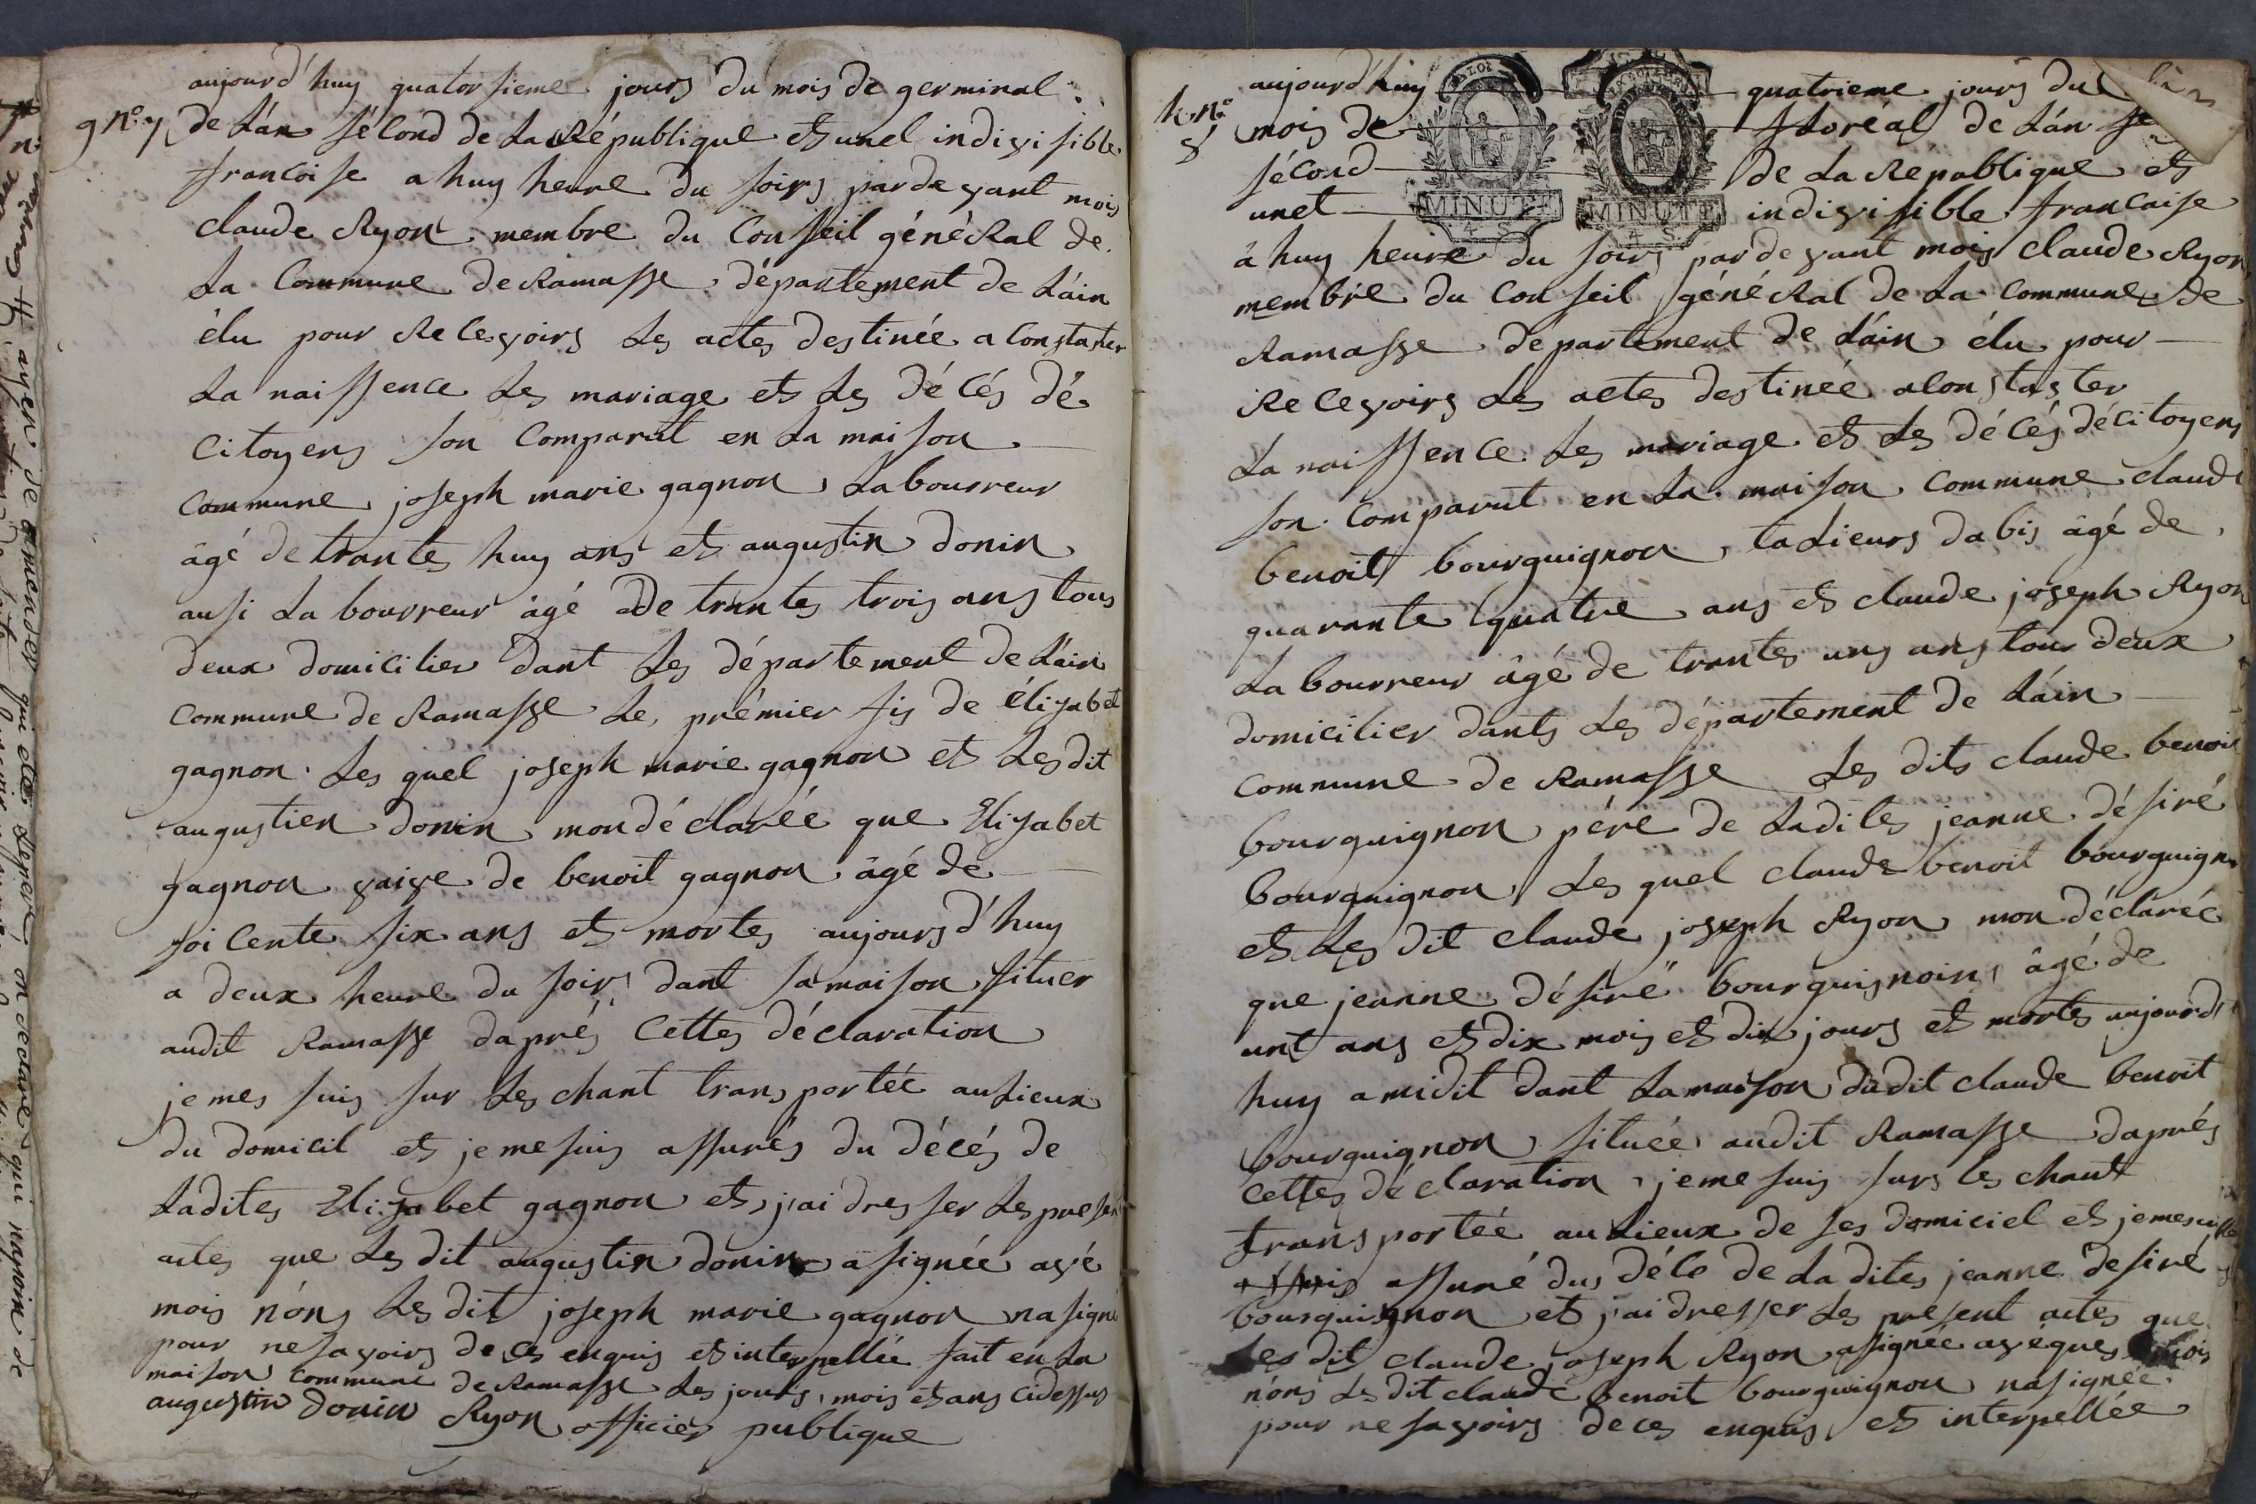 aujourd'huy quatorsieme jours du mois de germinal
g n° 7 de Lán sécond de La République et unel indivisible
francoise a huy heure du soirs pardevant mois
claude Ryon membre du Conseil généRal de
La Commune de Ramasse département de Láin
élu pour Recevoirs Les actes destinée a Constaster
La naissence Les mariage et Les décés dé
Citoyens son Comparut en La maison
Commune joseph marie gagnon Labourreur
âgé de trantes huy ans et augustin donin
ausi La bourreur âgé de trantes trois ans tous
deux domicilier dant Les département de Láin
Commune de Ramasse Le prémier fis de élisabet
gagnon Les quel joseph marie gagnon et Les dit
augustien donin mon déclarée que Elisabet
gagnon vaive de benoit gagnon âgé de
soicente six ans et mortes aujoursd'huy
a deux heure du soirs dant sa maison situer
audit Ramasse daprés Cettes déclaration
je mes suis sur Les chant transportée au Lieux
du domicil et je me suis assurés du décés de
Ladites Elisabet gagnon et j'ai dresser Les presen
actes que Les dit augustin donin a signée avé
mois nóns Les dit joseph marie gagnon na signé
pour ne savoirs de ces enquis et interpellée fait en La
maison Commune de Ramasse Les jours mois et ans Cidessus
augustin donin Ryon officier publique
n°
8
aujourd'huy quatrieme jours du
mois de floréal de Lán
sécond de La Republique et
unet indivisible francaise
MINUTE
4 S
MINUTE
4 S
à huy heure du soirs pardevant mois claude Ryon
membre du Conseil généRal de La Commune de
Ramasse département de Láin élu pour
Recevoirs Les actes destinée a Constaster
La naissence Les mariage et Les décés dé Citoyens
son Comparut en La maison Commune claude
benoit bourguignon taLieurs dabis âgé de
quarante quatre ans et claude joseph Ryon
La bourreur âgé de trantes uns ans tous deux
domicilier dants Les département de Láin
Commune de Ramasse Les dits claude benoit
bourguignon pére de Ladites jeanne désiré
bourguignon Les quel claude benoit bourguignon
et Les dit claude joseph Ryon mon déclarée
que jeanne désiré bourguignoin âgé de
unt ans et dix mois et dix jours et mortes aujourd
huy a midit dant La maison dudit claude benoit
bourguignon située audit Ramasse daprés
Cettes déclaration je me suis surs les chant
transportée au Lieux de ses domiciel et je me suis
assuré dus décé de La dites jeanne desiré
bourguignon et j'ai dresser Les present actes que
Les dit claude joseph Ryon a signée avéques mois
nóns Les dit claude benoit bourguignon na signée
pour ne savoirs de ces enquis et interpellée